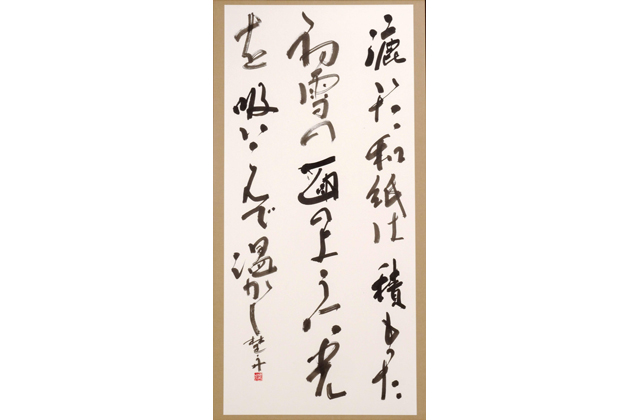 漉いた和紙は積もった
初雪の面のように光
を吸いこんで温かし